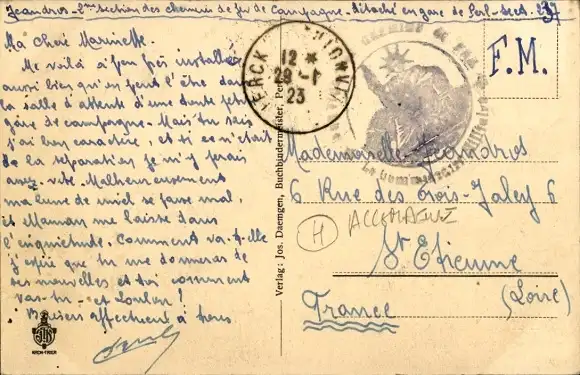 Jeandros - 2me section des chemins de fer de Campagne - Détaché en gare de Perl - Sect. 237
Ma chère Marinette.
Me voilà à peu près installé
aussi bien qu'on peut l'être dans
la salle d'attente d'une toute petite
gare de campagne. Mais tu sais
j'ai bon caractère, et si ce n'était
de la séparation je m'y ferais
assez vite. Malheureusement
ma lune de miel se passe mal,
et Maman me laisse dans
l'inquiétude. Comment va-t-elle
j'espère que tu me donneras de
ses nouvelles et toi comment
vas-tu - et Loulou !
Baisers affectueux à tous
MERCK
12 *
29 -1
23
F.M.
Mademoiselle Jeandros
6 Rue des Trois-Jaley 6
H ALLEMAGNE
St Etienne
(Loire)
France
Verlag: Jos. Daemgen, Buchbindermeister, Perl